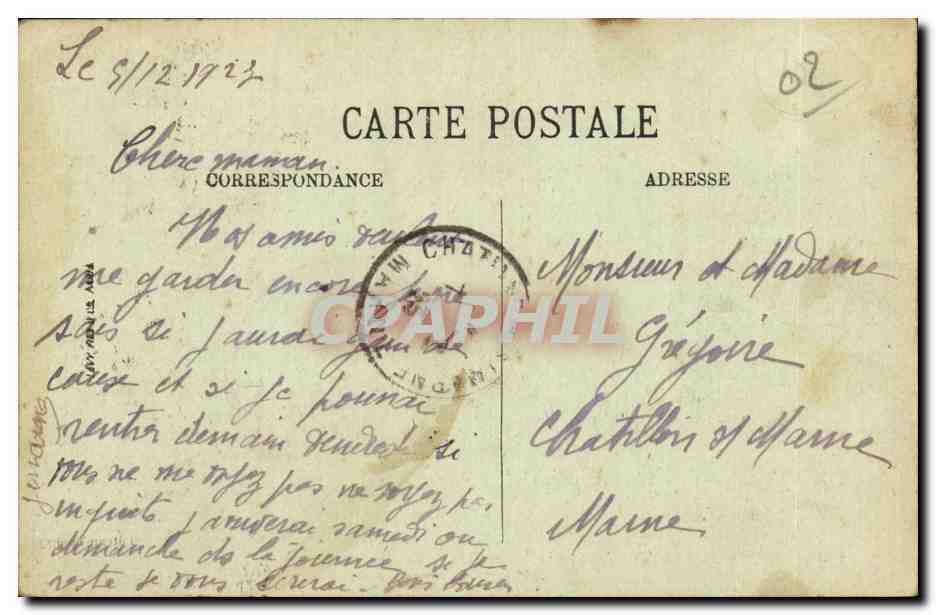 Le 5/12 1923
02
CARTE POSTALE
Chère maman.
CORRESPONDANCE
ADRESSE
Nos amis veulent
me garder encore
sais si j'aurai gain de
cause et si je pourrai
rentrer demain vendredi si
vous ne me voyez pas ne soyez pas
inquiets j'arriverai samedi ou
dimanche ds la journée si je
reste je vous écrirai. Bons baisers
CHATILL
MARNE
Monsieur et Madame
Grégoire
Chatillon s/ Marne
Marne
CPAPHIL